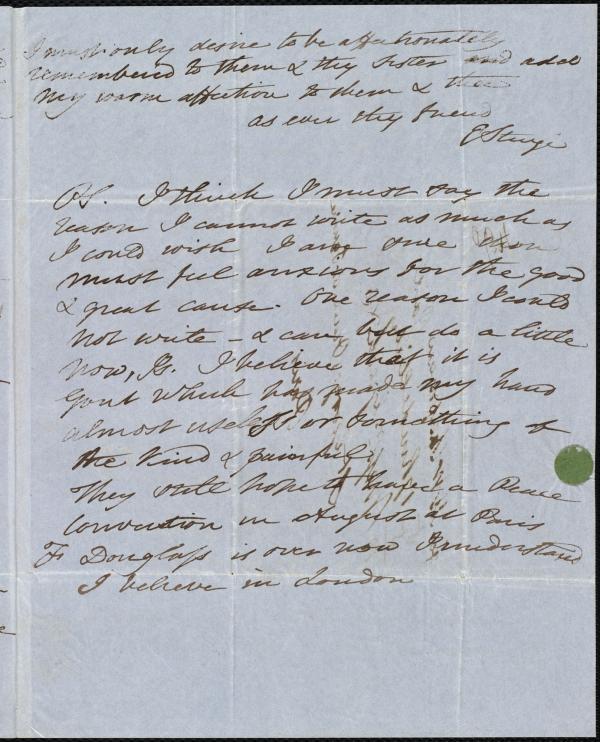 I must only desire to be affectionately
remembered to them & thy sister and add
my warm affection to them & thee
as ever thy friend
E Sturge
PS. I think I must say the
reason I cannot write as much as
I could wish I am sure thou
must feel anxious for the good
& great cause. One reason I could
not write - & can but do a little
now, Is. I believe that it is
Gout which has made my hand
almost useless, or something of
the kind & painful.
They still hope to have a Peace
Convention in August at Paris
F Douglass is over now I understand
I believe in London